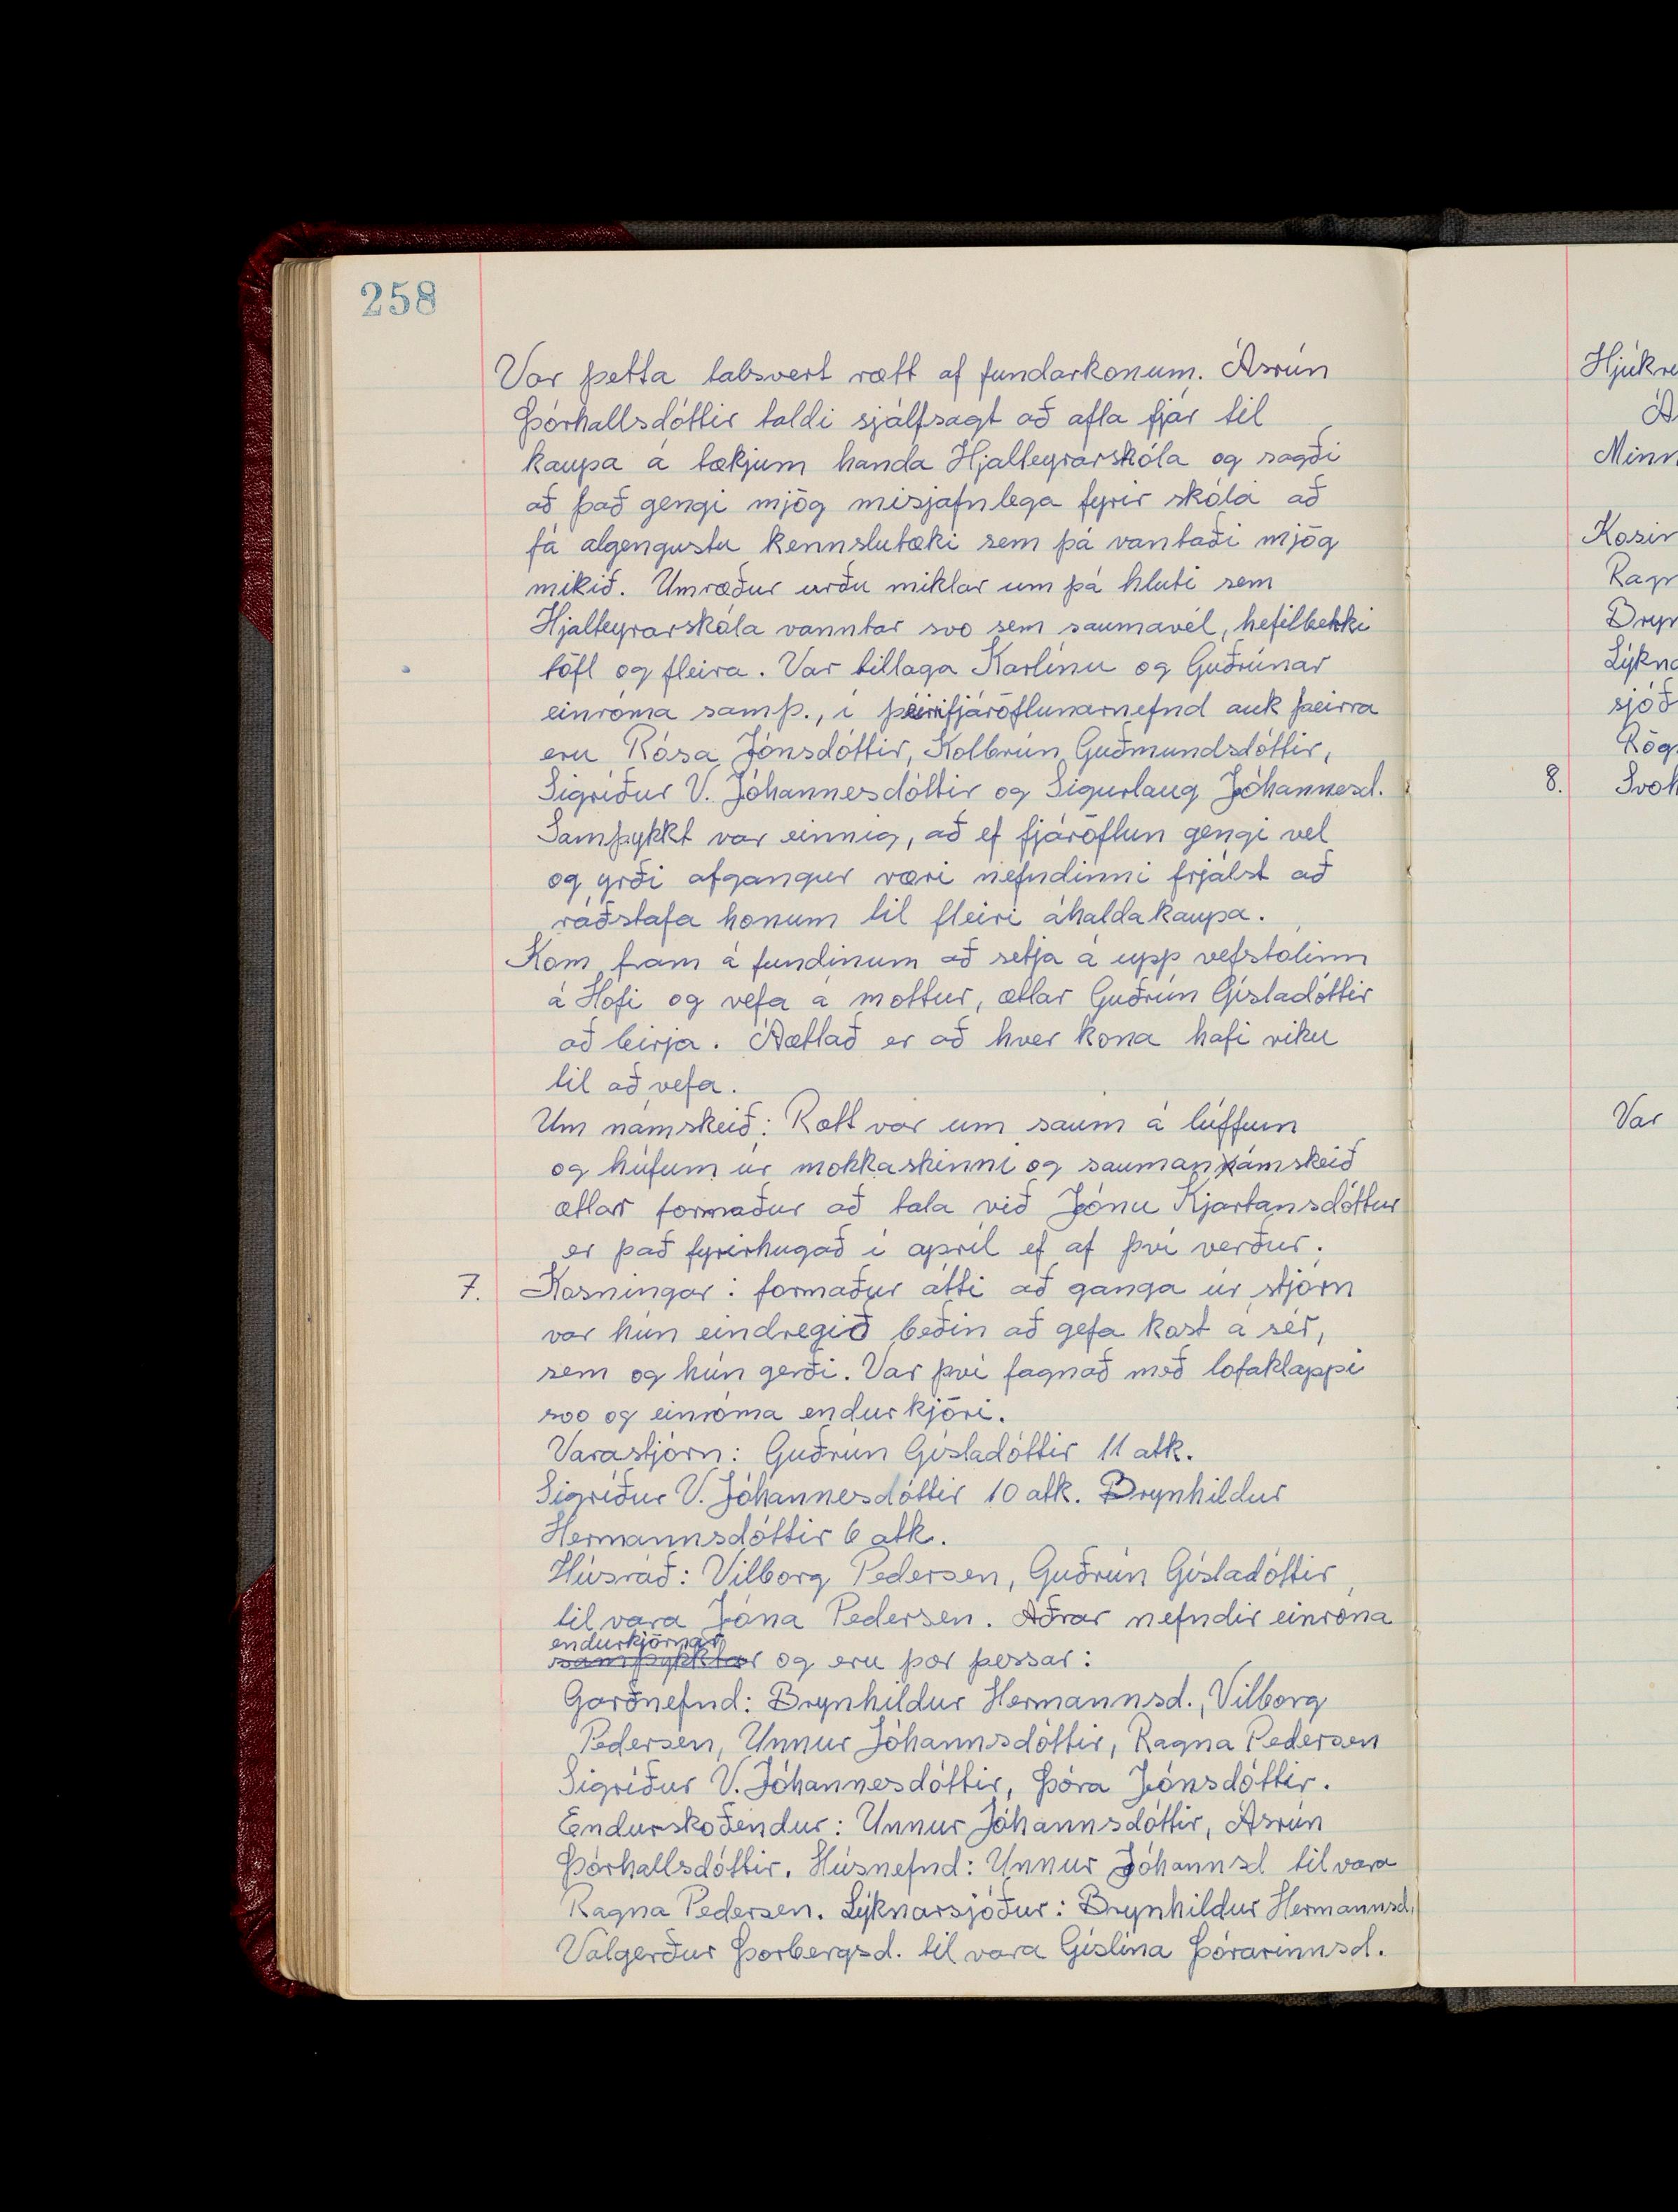 258
Var þetta talsvert rætt af fundarkonum. Ásrún
Þórhallsdóttir taldi sjálfsagt að afla fjár til
kaupa á tækjum handa Hjalteyrarskóla og sagði
að það gengi mjög misjafnlega fyrir skóla að
fá algengustu kennslutæki sem þá vantaði mjög
mikið. Umræður urðu miklar um þá hluti sem
Hjalteyrarskóla vanntar svo sem saumavél, hefilbekki
töfl og fleira. Var tillaga Karlínu og Guðrúnar
einróma samþ., í fjáröflunarnefnd auk þeirra
eru Rósa Jónsdóttir, Kolbrún Guðmundsdóttir,
Sigríður V. Jóhannesdóttir og Sigurlaug Jóhannesd.
Samþykkt var einnig, að ef fjáröflun gengi vel
og yrði afgangur væri nefndinni frjálst að
ráðstafa honum til fleiri áhaldakaupa.
Kom fram á fundinum að setja á upp vefstólinn
á Hofi og vefa á mottur, ætlar Guðrún Gísladóttir
að birja. Áætlað er að hver kona hafi viku
til að vefa.
Um námskeið: Rætt var um saum á lúffum
og húfum úr mokkaskinni og saumanámskeið
ætlar formaður að tala við Jónu Kjartansdóttur
er það fyrirhugað í apríl ef af því verður.
7. Kosningar: formaður átti að ganga úr stjórn
var hún eindregið beðin að gefa kost á sér,
sem og hún gerði. Var því fagnað með lofaklappi
svo og einróma endurkjöri.
Varastjórn: Guðrún Gísladóttir 11 atk.
Sigríður V. Jóhannesdóttir 10 atk. Brynhildur
Hermannsdóttir 6 atk.
Húsráð: Vilborg Pedersen, Guðrún Gísladóttir,
til vara Jóna Pedersen. Aðrar nefndir einróna
endurkjörnar
samþykktar og eru þær þessar:
Garðnefnd: Brynhildur Hermannsd., Vilborg
Pedersen, Unnur Jóhannsdóttir, Ragna Pedersen
Sigríður V. Jóhannesdóttir, Þóra Jónsdóttir.
Endurskoðendur: Unnur Jóhannsdóttir, Ásrún
Þórhallsdóttir. Húsnefnd: Unnur Jóhannsd til vara
Ragna Pedersen. Líknarsjóður: Brynhildur Hermannsd,
Valgerður Þorbergsd. til vara Gíslína Þórarinnsd.
8.
sjóð
Var